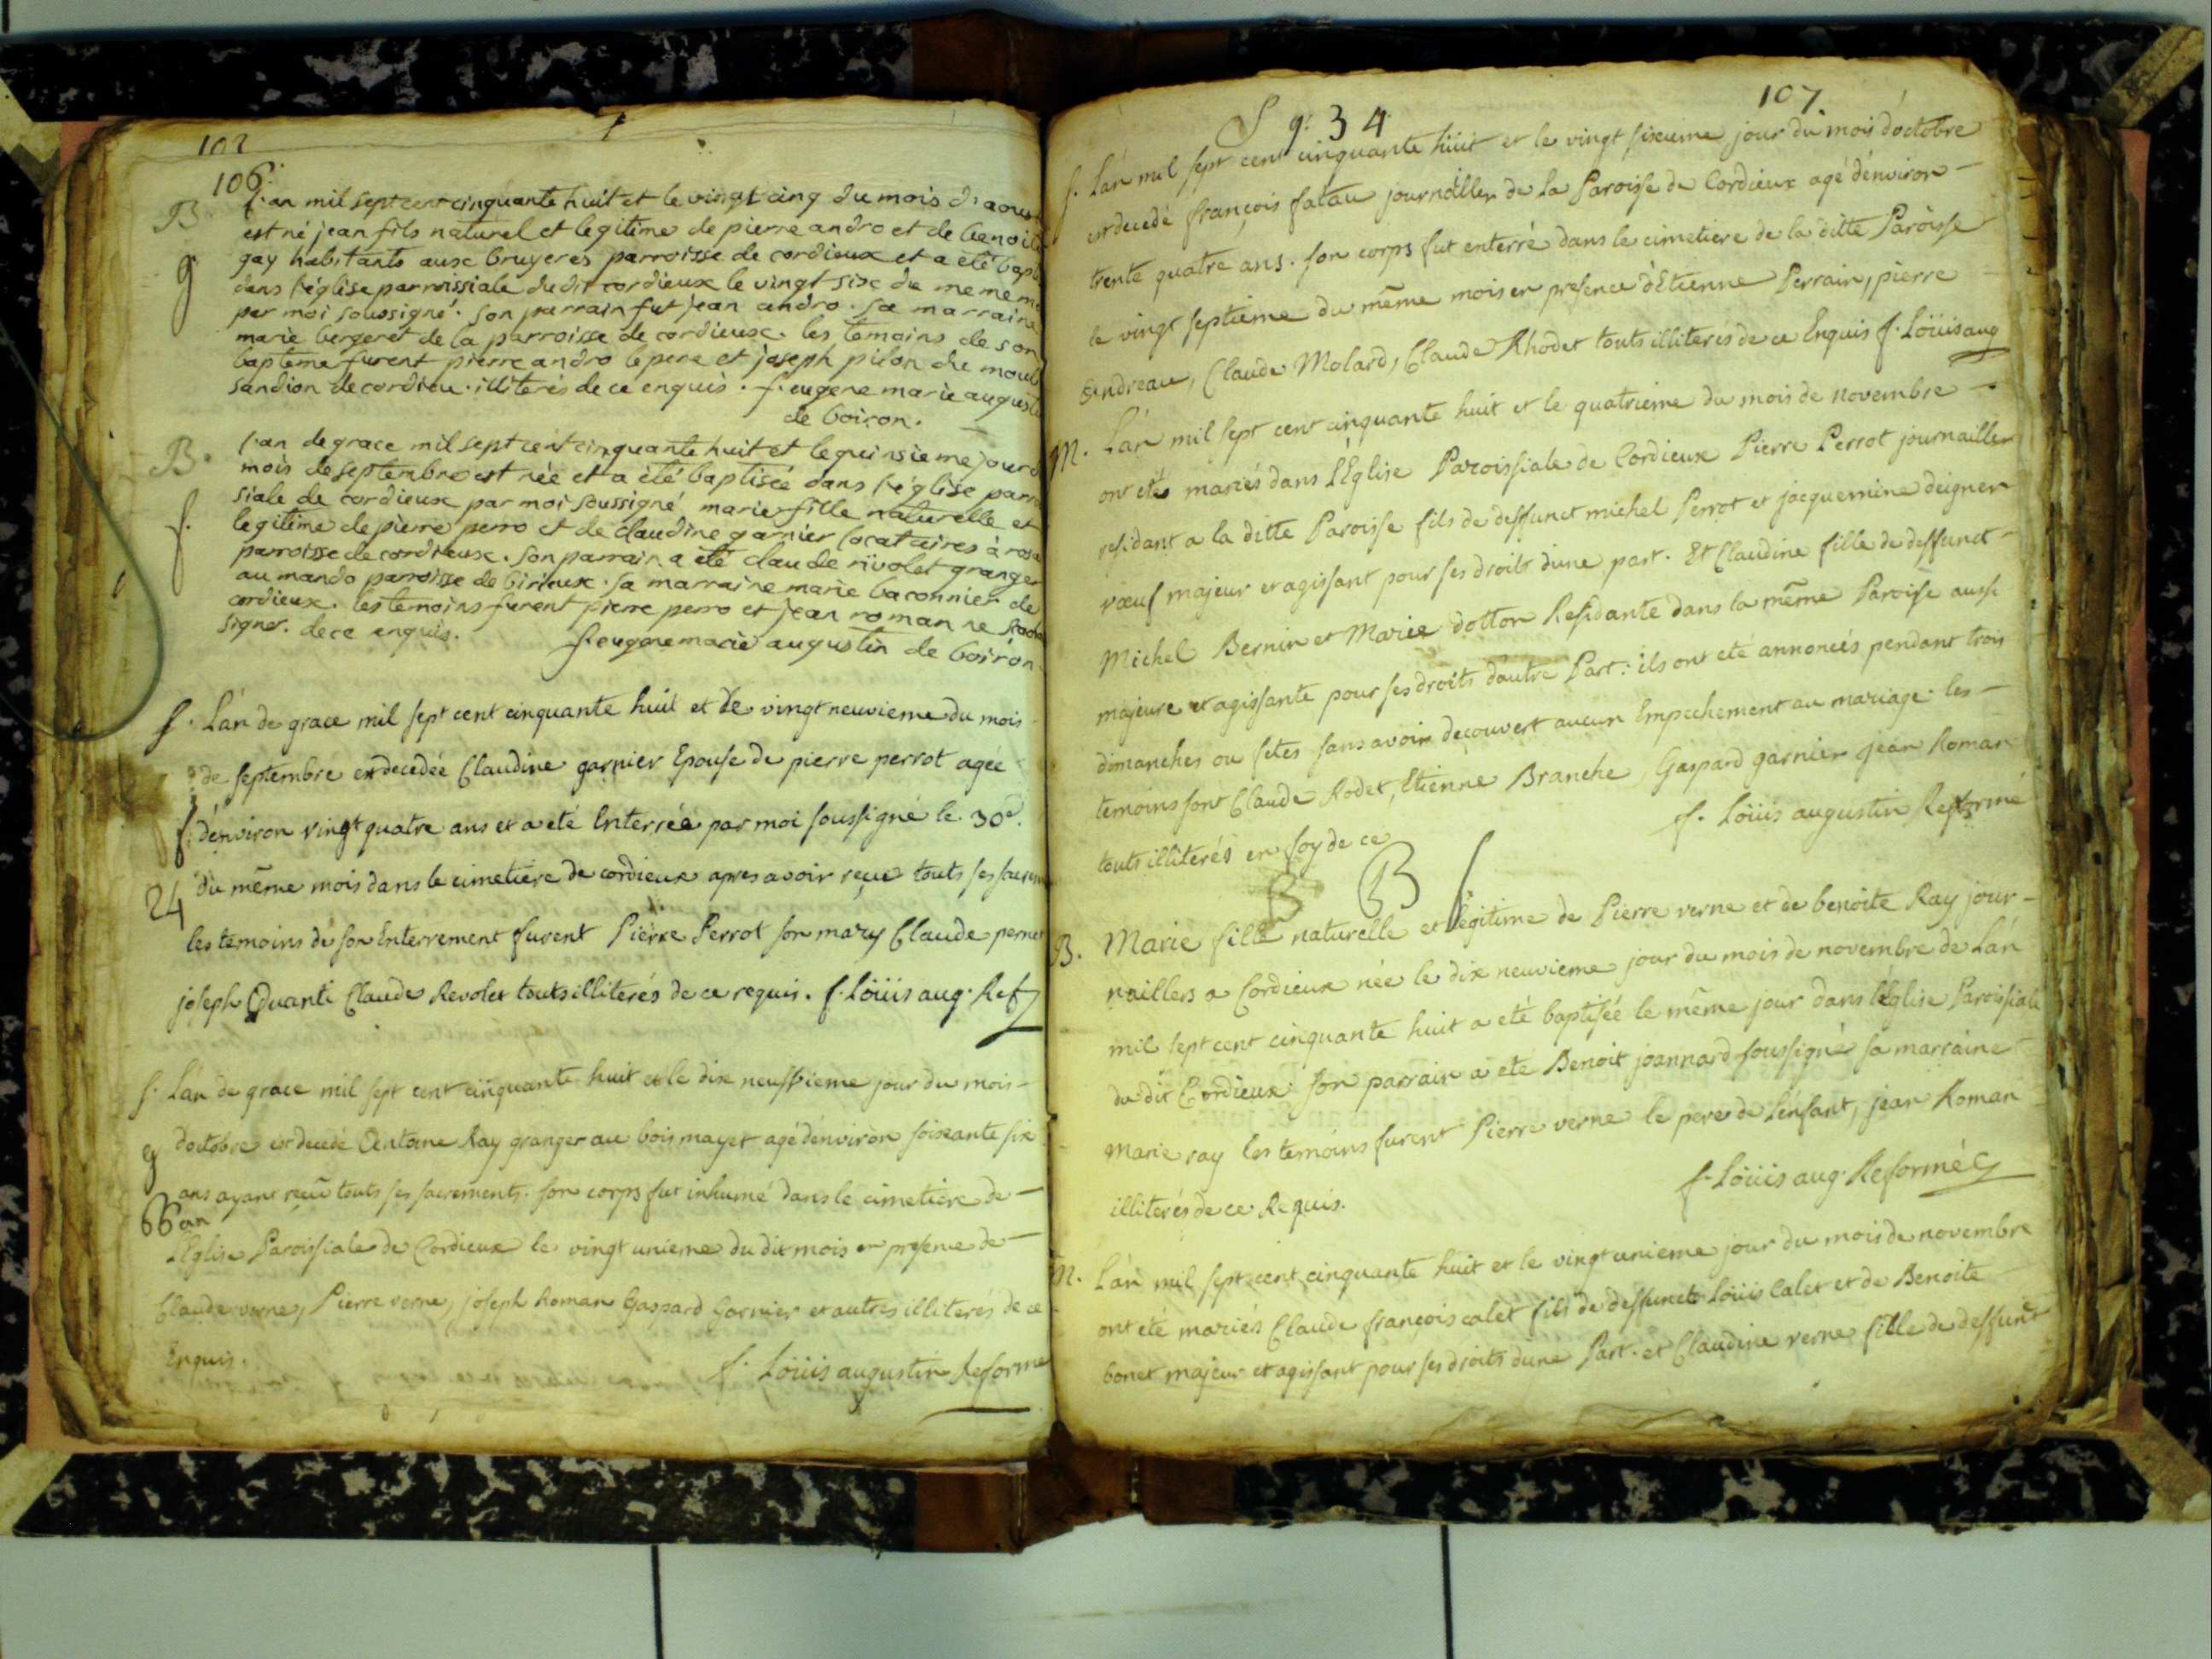 102
106.
B l'an mil sept cent cinquante huit et le vingt cinq du mois d'aoust
est né jean fils naturel et legitime de pierre andro et de benoite
g gay habitants aux bruyeres parroisse de cordieux et a eté bapti
dans l'église parroissiale dudit cordieux le vingt six du meme m
par moi soussigné. son parrain fut jean andro. sa marraine
marie bergeret de la parroisse de cordieux. les temoins de son
bapteme furent pierre andro le pere et joseph pilon du moul
sandion de cordieu. illiterés de ce enquis. f. eugene marie augusti
de boiron.
B. l'an de grace mil sept cent cinquante huit et le quinsieme jour d
mois de septembre est née et a été baptisée dans l'église parro
siale de cordieux par moi soussigné marie fille naturelle et
f. legitime de pierre perro et de claudine garnier locataires à rosa
parroisse de cordieux. son parrain a eté claude rivolet granger
au mando parroisse de birieux. sa marraine marie baconnier de
cordieux. les temoins furent pierre perro et jean roman ne
signer. de ce enquis. f. eugene marie augustin de boiron
f. Lan de grace mil sept cent cinquante huit et le vingt neuvieme du mois
de septembre est decedée Claudine garnier Epouse de pierre perrot agée
f. d'environ vingt quatre ans et a eté Enterrée par moi soussigné le 30e.
24 du même mois dans le cimetiere de cordieux apres avoir reçue touts ses sacrem
les temoins de son Enterrement furent Pierre Perrot son mary Claude pernet
joseph Quanti Claude Revolet touts illiterés de ce requis. f. Loüis aug. Ref
f. Lan de grace mil sept cent cinquante huit et le dix neufvieme jour du mois
g d'octobre est decedé Antoine Ray granger au bois mayet agé d'environ soixante six
66 an ans ayant reçu touts ses sacrements. son corps fut inhumé dans le cimetiere de
L'Eglise Paroissiale de Cordieux le vingt unieme du dit mois en presence de
Claude verne, Pierre verne, joseph Roman Gaspard Garnier et autres illiterés de ce
Enquis. f. Loüis augustin Reformé
S 9. 34
107.
f. Lan mil sept cent cinquante huit et le vingt sixieme jour du mois d'octobre
est decedé françois fatau journailler de la Paroisse de Cordieux agé d'environ
trente quatre ans. son corps fut enterré dans le cimetiere de la ditte Paroisse
le vingt septieme du même mois en presence d'Etienne Perrain, pierre
Andreau, Claude Molard, Claude Rhodet touts illiteres de ce Enquis f. Loüis aug
M. Lan mil sept cent cinquante huit et le quatrieme du mois de novembre
ont etés mariés dans l'Eglise Paroissiale de Cordieux Pierre Perrot journailler
residant a la ditte Paroisse fils de deffunct michel Perrot et jacquemine deigner
vœuf majeur et agissant pour ses droits dune part. Et Claudine fille de deffunct
Michel Bernin et Marie dotton Residante dans la même Paroisse aussi
majeure et agissante pour ses droits dautre Part: ils ont eté annoncés pendant trois
dimanches ou fetes sans avoir decouvert aucun Empechement au mariage. les
temoins sont Claude Rodet, Etienne Branche, Gaspard garnier jean Roman
touts illiterés en foy de ce f. Loüis augustin Reformé
B B f
B. Marie fille naturelle et légitime de Pierre verne et de benoite Ray jour-
naillers a Cordieux née le dix neuvieme jour du mois de novembre de Lan
mil sept cent cinquante huit a eté baptisée le même jour dans l'Eglise Paroissiale
du dit Cordieux son parrain a eté Benoit joannard soussigné sa marraine
Marie ray les temoins furent Pierre verne le pere de L'enfant, jean Roman
illiterés de ce Requis. f. Loüis aug. Reformé
M. Lan mil sept cent cinquante huit et le vingt unieme jour du mois de novembre
ont eté mariés Claude françois calet fils de deffunct Loüis Calet et de Benoite
bonet majeur et agissant pour ses droits dune Part. et Claudine verne fille de deffunct